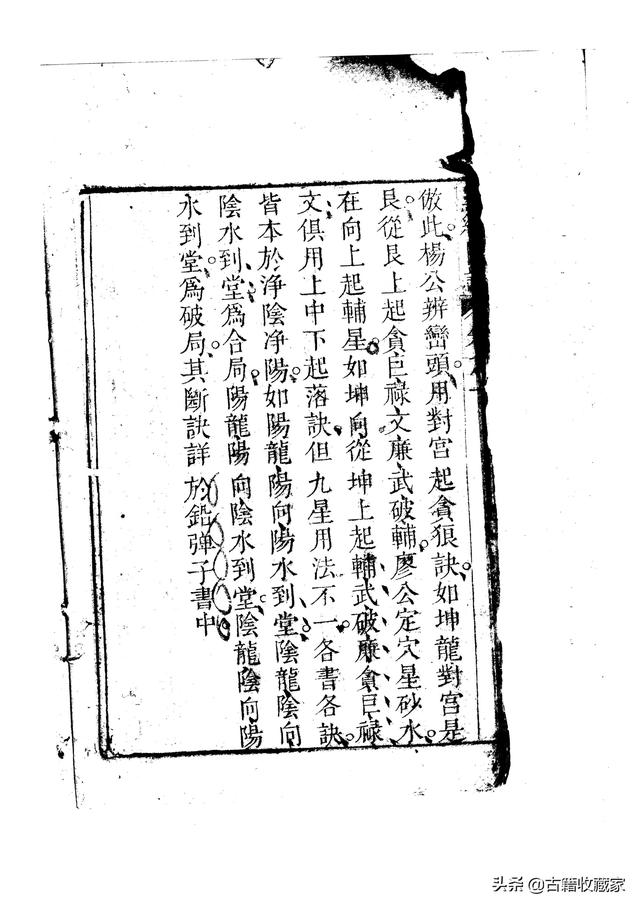 倣此楊公辨巒頭用對宮起貪狼訣如坤龍對宮是
艮從艮上起貪巨祿文廉武破輔廖公定穴星砂水
在向上起輔星如坤向從坤上起輔武破廉貪巨祿
文俱用上中下起落訣但九星用法不一各書各訣
皆本於淨陰净陽如陽龍陽向陽水到堂陰龍陰向
陰水到堂爲合局陽龍陽向陰水到堂陰龍陰向陽
水到堂爲破局其斷訣詳於鉛弹子書中
头条 @古籍收藏家